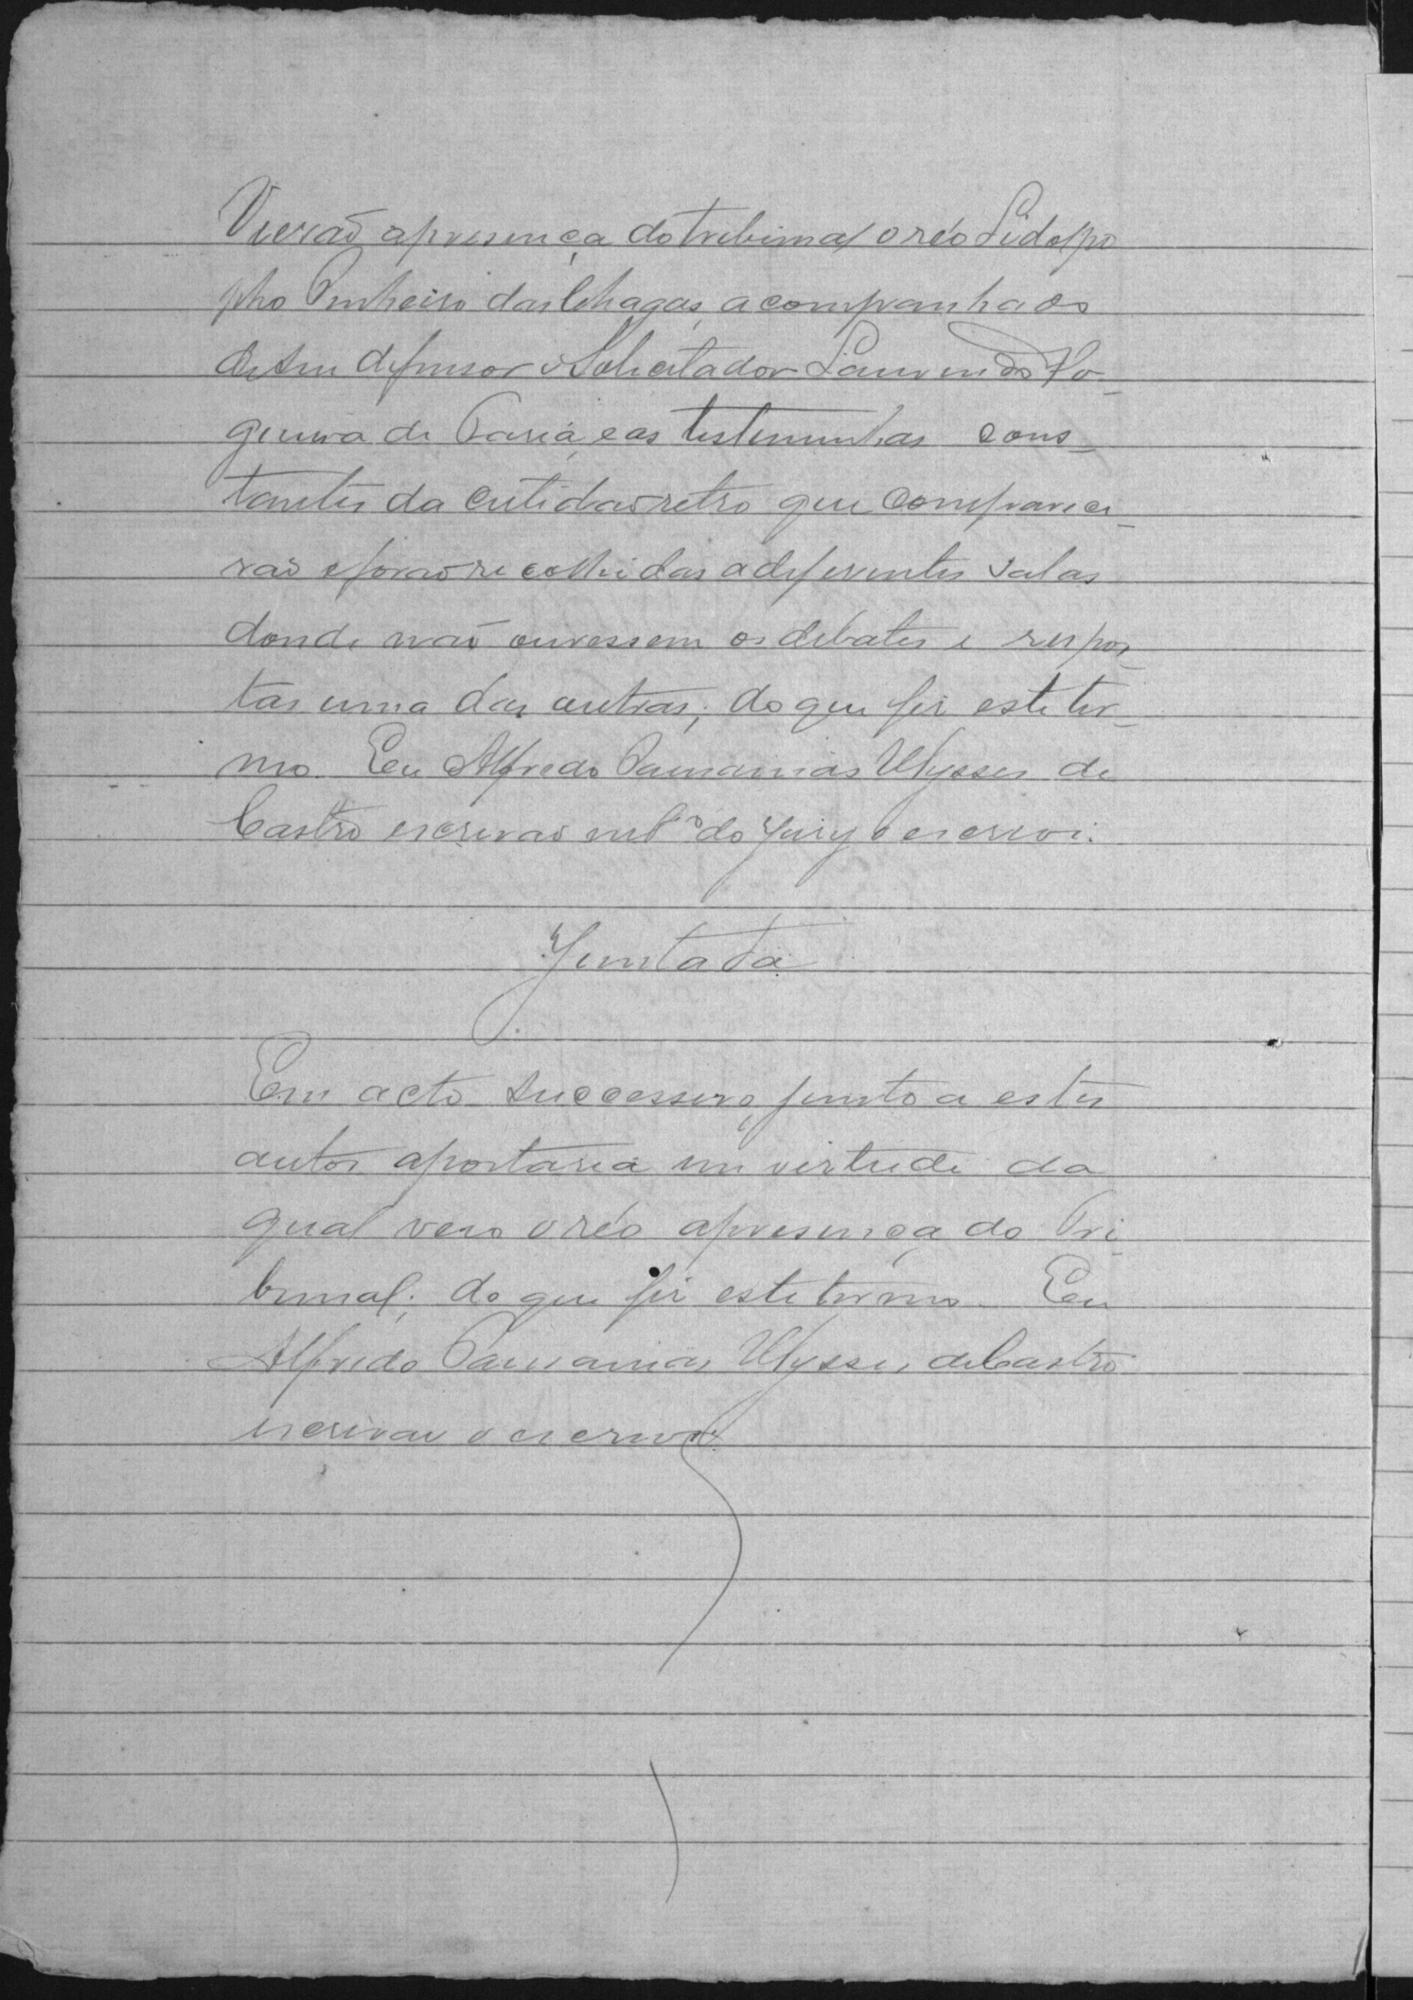 Vierão a presença do tribunal o réo Lidolpo
pho Pinheiro das Chagas, acompanhado
de seu defensor o Solicitador Laurindo No-
gueira de Paria, e as testemunhas cons-
tantes da certidão retro que comparece-
rão e forão recolhidas a diferentes salas
donde não ouvessem os debates e respos-
tas uma das outras; do que fiz este ter-
mo. Eu Alfredo Pausanias Ulysses de
Castro escrivão int.º do Jury o escrevi.
Juntada
Em acto successivo, junto a estes
autos a portaria em virtude da
qual veio o réo a presença do Tri-
bunal; do que fiz este termo. Eu
Alfredo Pausanias Ulysses de Castro
escrivão o escrevi.